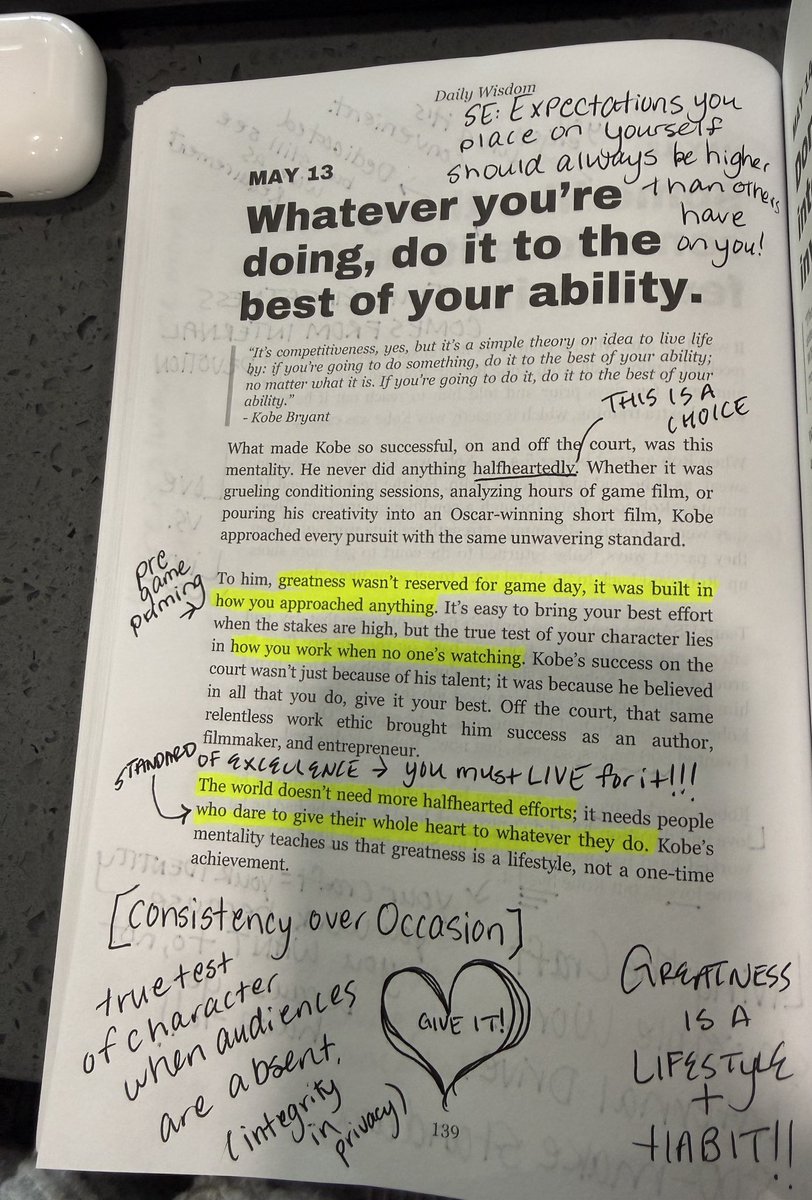 Daily Wisdom
SE: Expectations you
place on yourself
should always be higher
than others
have
on you!
MAY 13
Whatever you're
doing, do it to the
best of your ability.
"It's competitiveness, yes, but it's a simple theory or idea to live life
by: if you're going to do something, do it to the best of your ability;
no matter what it is. If you're going to do it, do it to the best of your
ability."
- Kobe Bryant
THIS IS A
CHOICE
What made Kobe so successful, on and off the court, was this
mentality. He never did anything halfheartedly. Whether it was
grueling conditioning sessions, analyzing hours of game film, or
pouring his creativity into an Oscar-winning short film, Kobe
approached every pursuit with the same unwavering standard.
pre
game
priming →
To him, greatness wasn't reserved for game day, it was built in
how you approached anything. It's easy to bring your best effort
when the stakes are high, but the true test of your character lies
in how you work when no one's watching. Kobe's success on the
court wasn't just because of his talent; it was because he believed
in all that you do, give it your best. Off the court, that same
relentless work ethic brought him success as an author,
filmmaker, and entrepreneur.
STANDARD OF EXCELLENCE → you must LIVE for it!!!
The world doesn't need more halfhearted efforts; it needs people
who dare to give their whole heart to whatever they do. Kobe's
mentality teaches us that greatness is a lifestyle, not a one-time
achievement.
[Consistency over Occasion]
true test
of character
when audiences
are absent.
(integrity
in
privacy)
GIVE IT!
GREATNESS
IS A
LIFESTYLE
+
HABIT!!
139